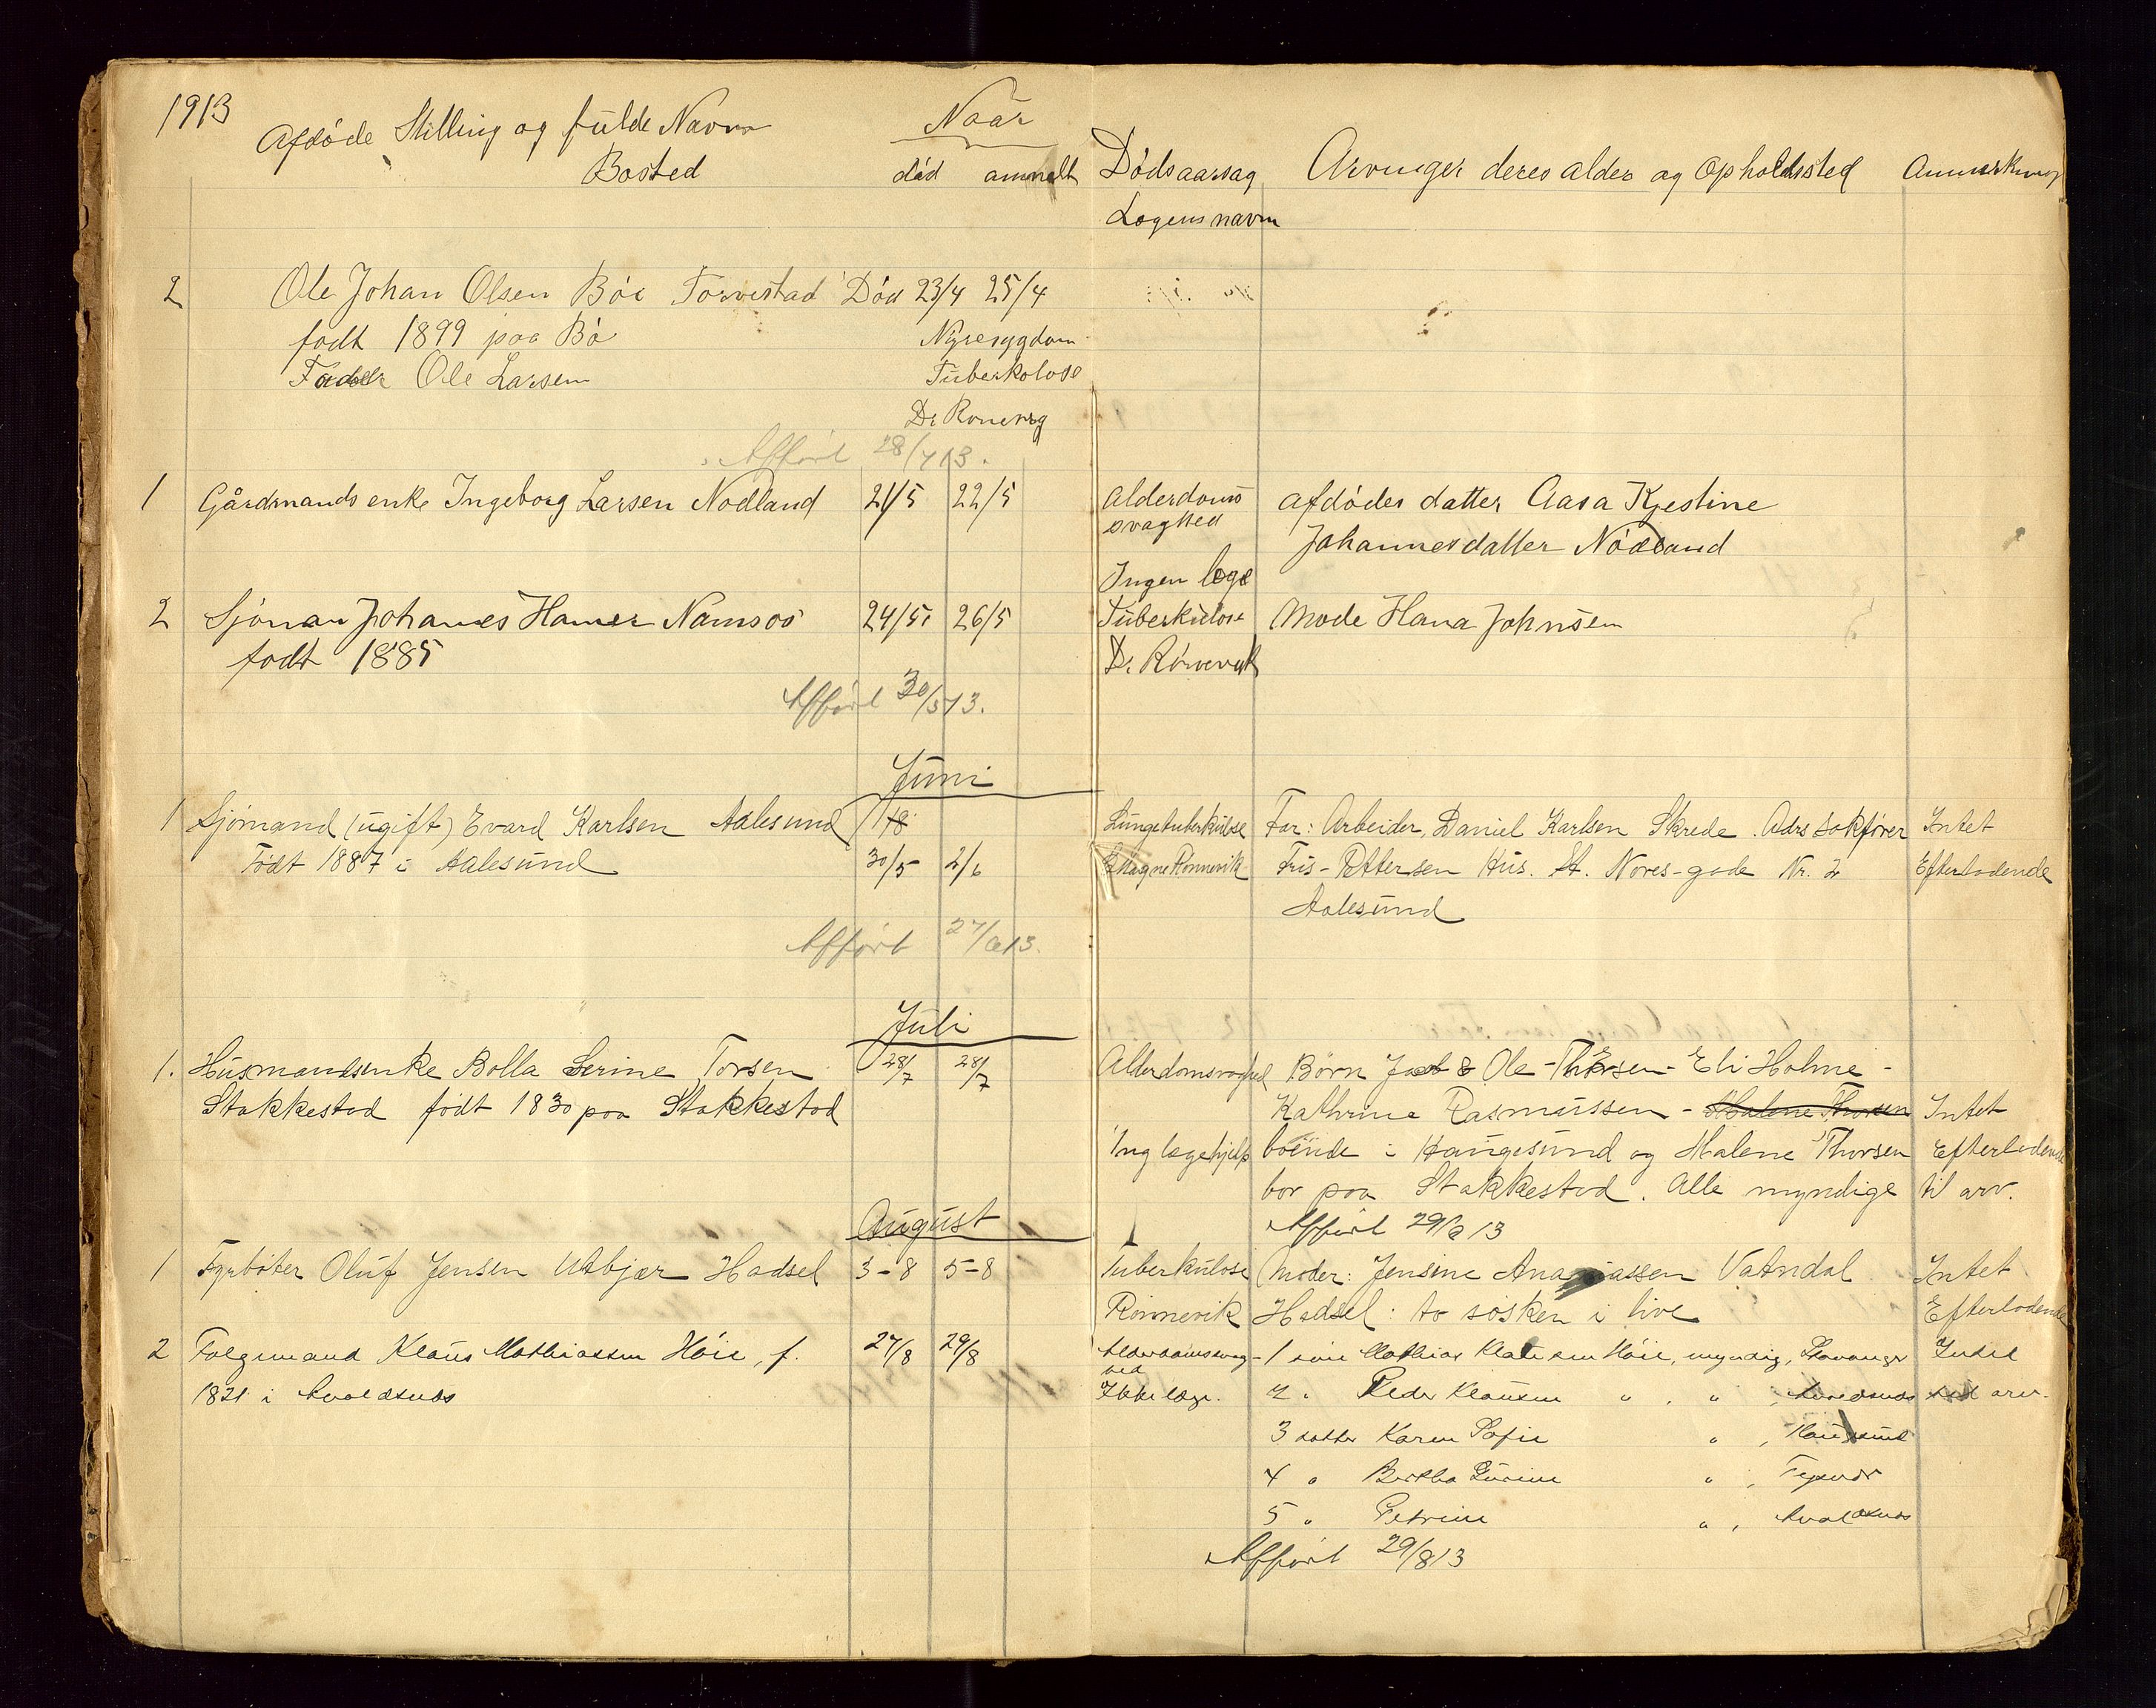 1913
Afdøde Stilling og fulde Navn
Bosted
Naar
død anmelt
Dødsaarsag
Legens navn
Arvinger deres alder og Opholdsted
Anmerkning
2 Ole Johan Olsen Bøe Torvestad Død 23/4 25/4
født 1899 paa Bø
Nyresygdom
Fader Ole Larsen
Tuberkolose
Dr
Afført 28/4 13.
1 Gårdmands enke Ingeborg Larsen Nodland 21/5 22/5 Alderdoms svaghed afdødes datter Aasa Kjestine
Johannesdatter Nødland
Ingen lege
2 Sjöman Johanes Hamer Namsos 24/5 26/5 Tuberkulose Mode Hana Johnsen
født 1885
Dr.
Afført 30/5 13.
Juni
1 Sjømand (ugift) Evard Karlsen Aalesund Lungetuberkulose Far: Arbeider, Daniel Karlsen Skrede. Adrs sakfører Intet
Født 1887 i Aalesund 30/5 2/6 Magne Rønnevik Friis-Pettersen Hus. St. Nores-gade Nr. 2 Efterladende
Aalesund
Afført 27/6 13.
Juli
1. Husmandsenke Bolla Serine Torsen 28/7 28/7 Alderdomsvaghed Børn Jacob & Ole Thorsen - Eli Holme -
Stakkestad født 1830 paa Stakkestad Kathrine Rasmussen - Malene Thorsen Intet
Ing legehjelp boende i Haugesund og Malene Thorsen Efterladende
bor paa Stakkestad. Alle myndige til arv.
Afført 29/ 13
August
1 Fyrbøter Oluf Jensen Utbjær Hadsel 3-8 5-8 Tuberkulose Moder: Jensine Vatndal Intet
Rönnevik Hadsel: to søsken i live Efterladende
2 Folgemand Klaus Mathiassen Høie, f. 27/8 29/8 Alderdomssvaghed - 1 søn Mathias Klausen Høie, myndig, Stavanger Intet
1821 i Avaldsnes Ikke læge. 2 " Peder Klausen " , " , Avaldsnes ted arv.
3 datter Karen Sofie " , Haugesund
4 " Bertha Gurine " , Tysvær
5 " Petrine " , Avaldsnes
Afført 29/8 13